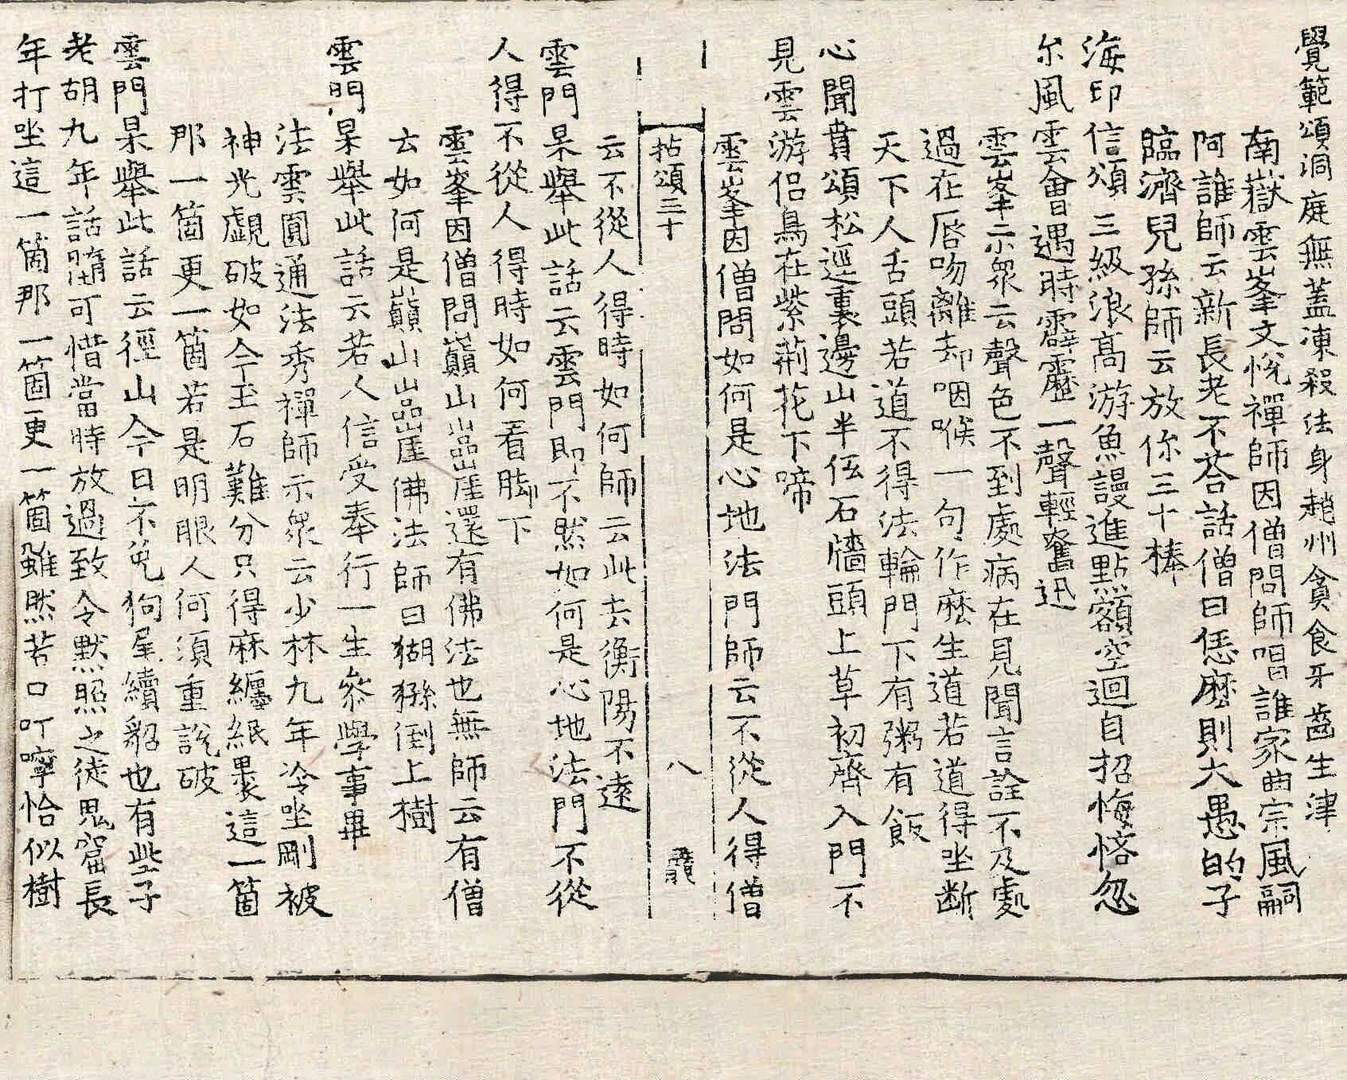 覺範頌洞庭無蓋凍殺法身趙州貪食牙齒生津
南嶽雲峯文悅禪師因僧問師唱誰家曲宗風嗣
阿誰師云新長老不荅話僧曰恁麼則大愚的子
臨濟兒孫師云放你三十棒
海印信頌三級浪高游魚謾進點額空迴自招悔悋忽
尔風雲會遇時霹靂一聲輕奮迅
雲峯示衆云聲色不到處病在見聞言詮不及處
過在唇吻離却咽喉一句作麼生道若道得坐断
天下人舌頭若道不得法輪門下有粥有飯
心聞賁頌松逕裏邊山半伍石牆頭上草初齊入門不
見雲游侶鳥在紫荊花下啼
雲峯因僧問如何是心地法門師云不從人得僧
拈頌三十 八
云不從人得時如何師云此去衡陽不遠
雲門杲舉此話云雲門即不然如何是心地法門不從
人得不從人得時如何看脚下
雲峯因僧問巔山嵓崖還有佛法也無師云有僧
云如何是巔山嵓崖佛法師曰猢猻倒上樹
雲門杲舉此話云若人信受奉行一生叅學事畢
法雲圓通法秀禪師示衆云少林九年冷坐剛被
神光覷破如今至石難分只得麻纏紙裹這一箇
那一箇更一箇若是明眼人何須重說破
雲門杲舉此話云徑山今日不免狗尾續貂也有些子
老胡九年話墮可惜當時放過致令默照之徒鬼窟長
年打坐這一箇那一箇更一箇雖然苦口叮嚀恰似樹